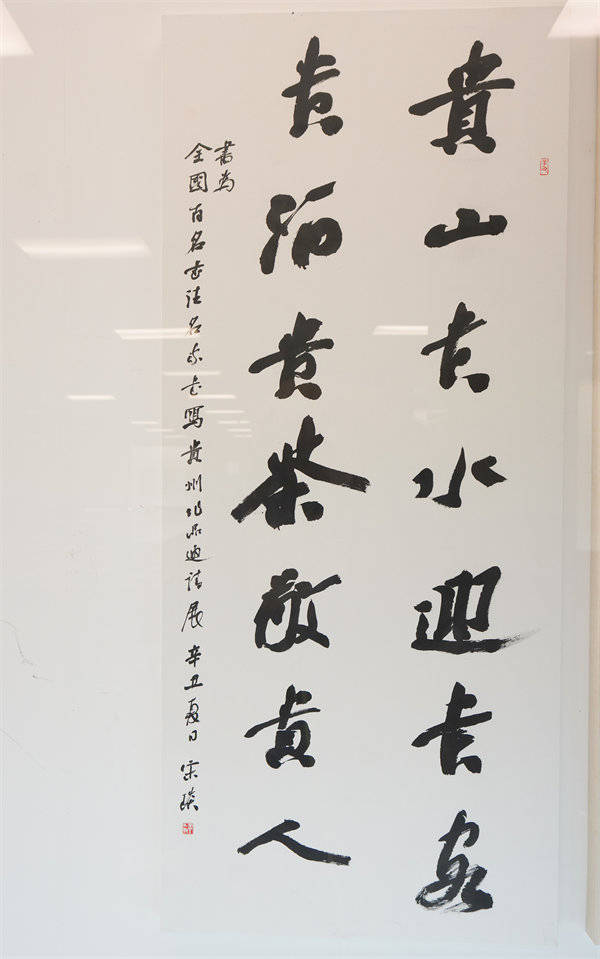 貴山貴水迎貴客
貴酒貴茶敬貴人
書為
全國百名書法名家書寫貴州作品邀請展 辛丑夏日 宋